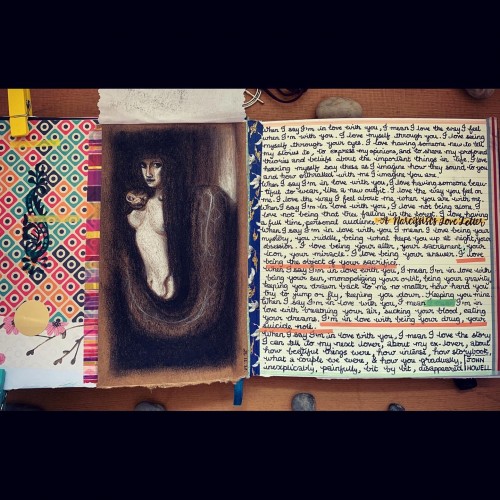 When I say I'm in love with you, I mean I love the way I feel
when I'm with you. I love myself through you. I love seeing
myself through your eyes. I love having someone new to tell
my stories to, to express my opinions, and to share my profound
theories and beliefs about the important things in life. I love
hearing myself say these as I imagine how they sound to you
and how enthralled with me I imagine you are.
When I say I'm in love with you, I love having someone beau-
tiful to wear, like a new outfit. I love the way you feel on
me. I love the way I feel about me when you are with me.
When I say I'm in love with you, I love not being alone. I
love not being that tree falling in the forest. I love having
a full time, personal audience.
A Narcissist's Love Letter
When I say I'm in love with you I mean I love being your
mystery, you riddle, being what keeps you up at night, your
obsession. I love being your altar, your sacrament, your
icon, your miracle. I love being your answer. I love
being the object of your sacrifice.
When I say I'm in love with you, I mean I'm in love with
being your sun, monopolizing your orbit, being your gravity,
keeping you drawn back to me no matter how hard you
try to jump or fly, keeping you down. Keeping you mine.
When I say I'm in love with you, I mean I'm in
love with breathing your air, sucking your blood, eating
your dreams. I'm in love with being your drug, your
suicide note.
When I say I'm in love with you, I mean I love the story
I can tell to my next lover, about my ex-lover, about
how beautiful things were, how unreal, how storybook,
what a couple we were, & how you gradually,
inexplicably, painfully, bit by bit, disappeared.
JOHN
HOWELL